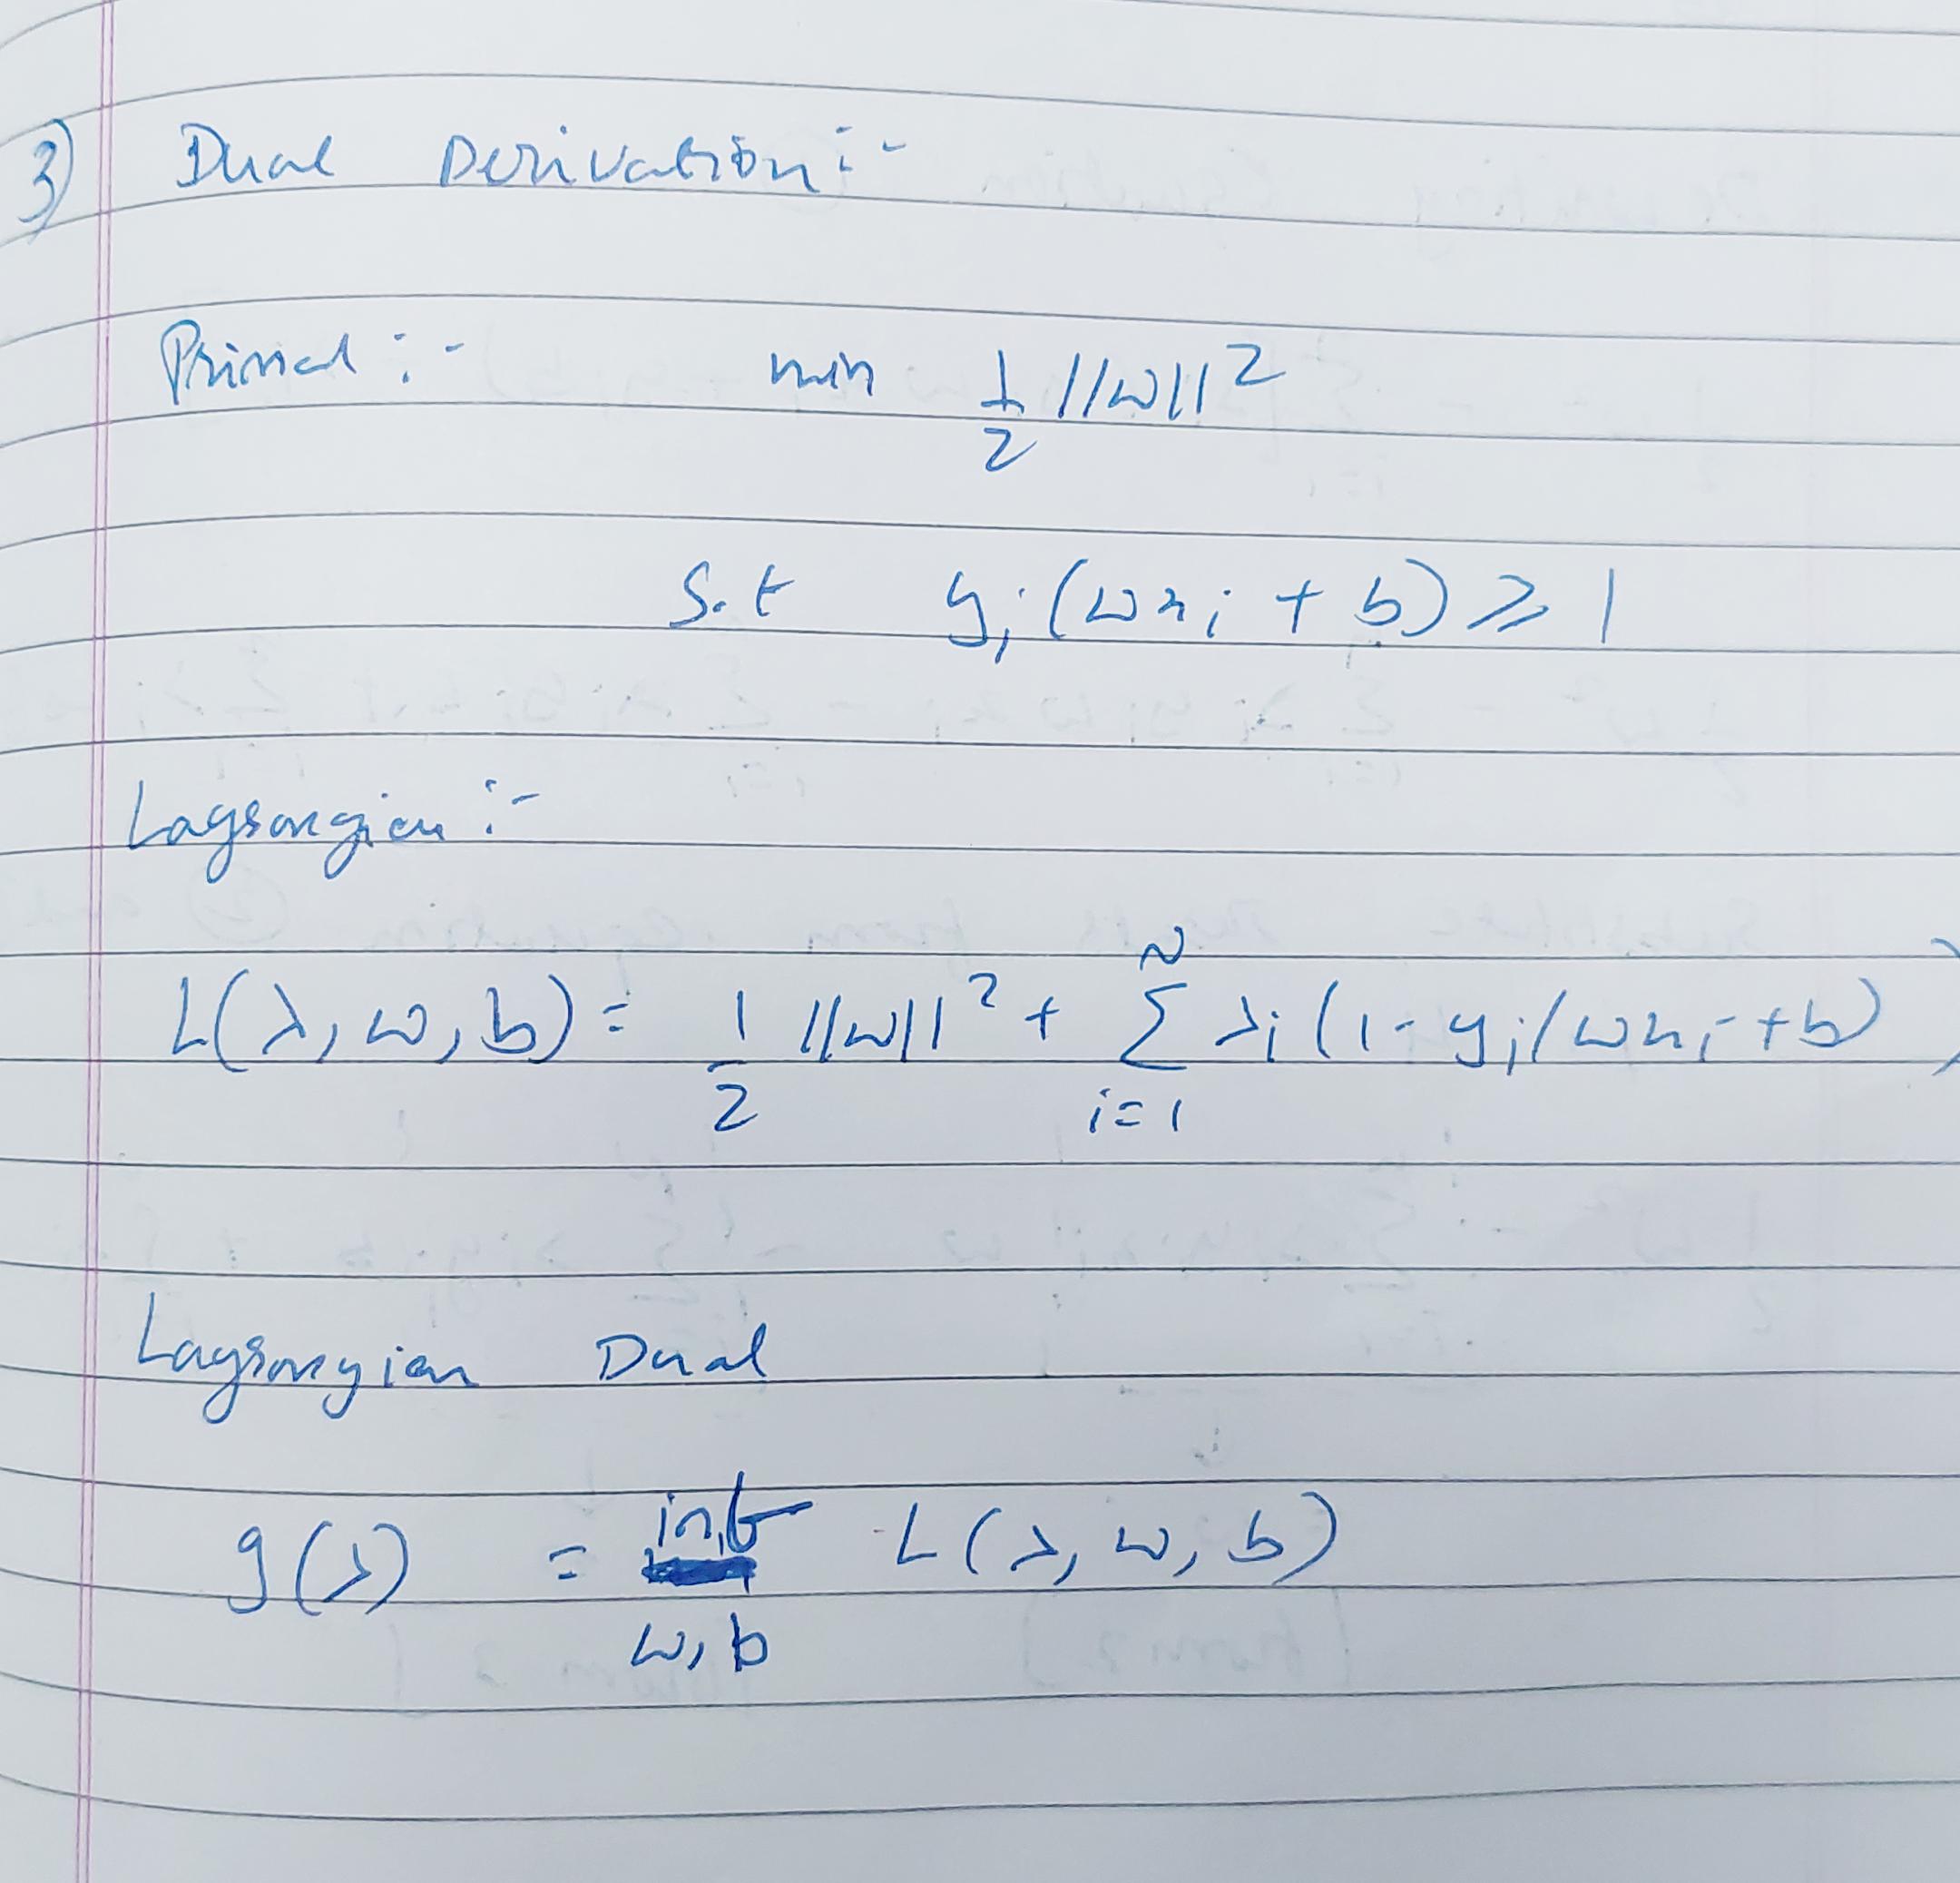 3) Dual Derivation:-
Primal :- min 1/2 ||w||²
S.t yi(wxi + b) ≥ 1
Lagrangian :-
L(λ, w, b) = 1/2 ||w||² + Σ_{i=1}^{N} λi(1 - yi(wxi + b))
Lagrangian Dual
g(λ) = inf_{w,b} L(λ, w, b)